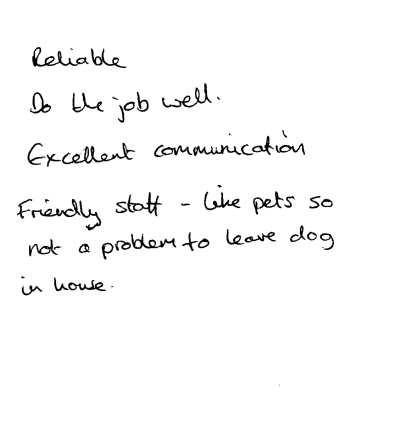 Reliable
Do the job well.
Excellent communication
Friendly staff - like pets so
not a problem to leave dog
in house.